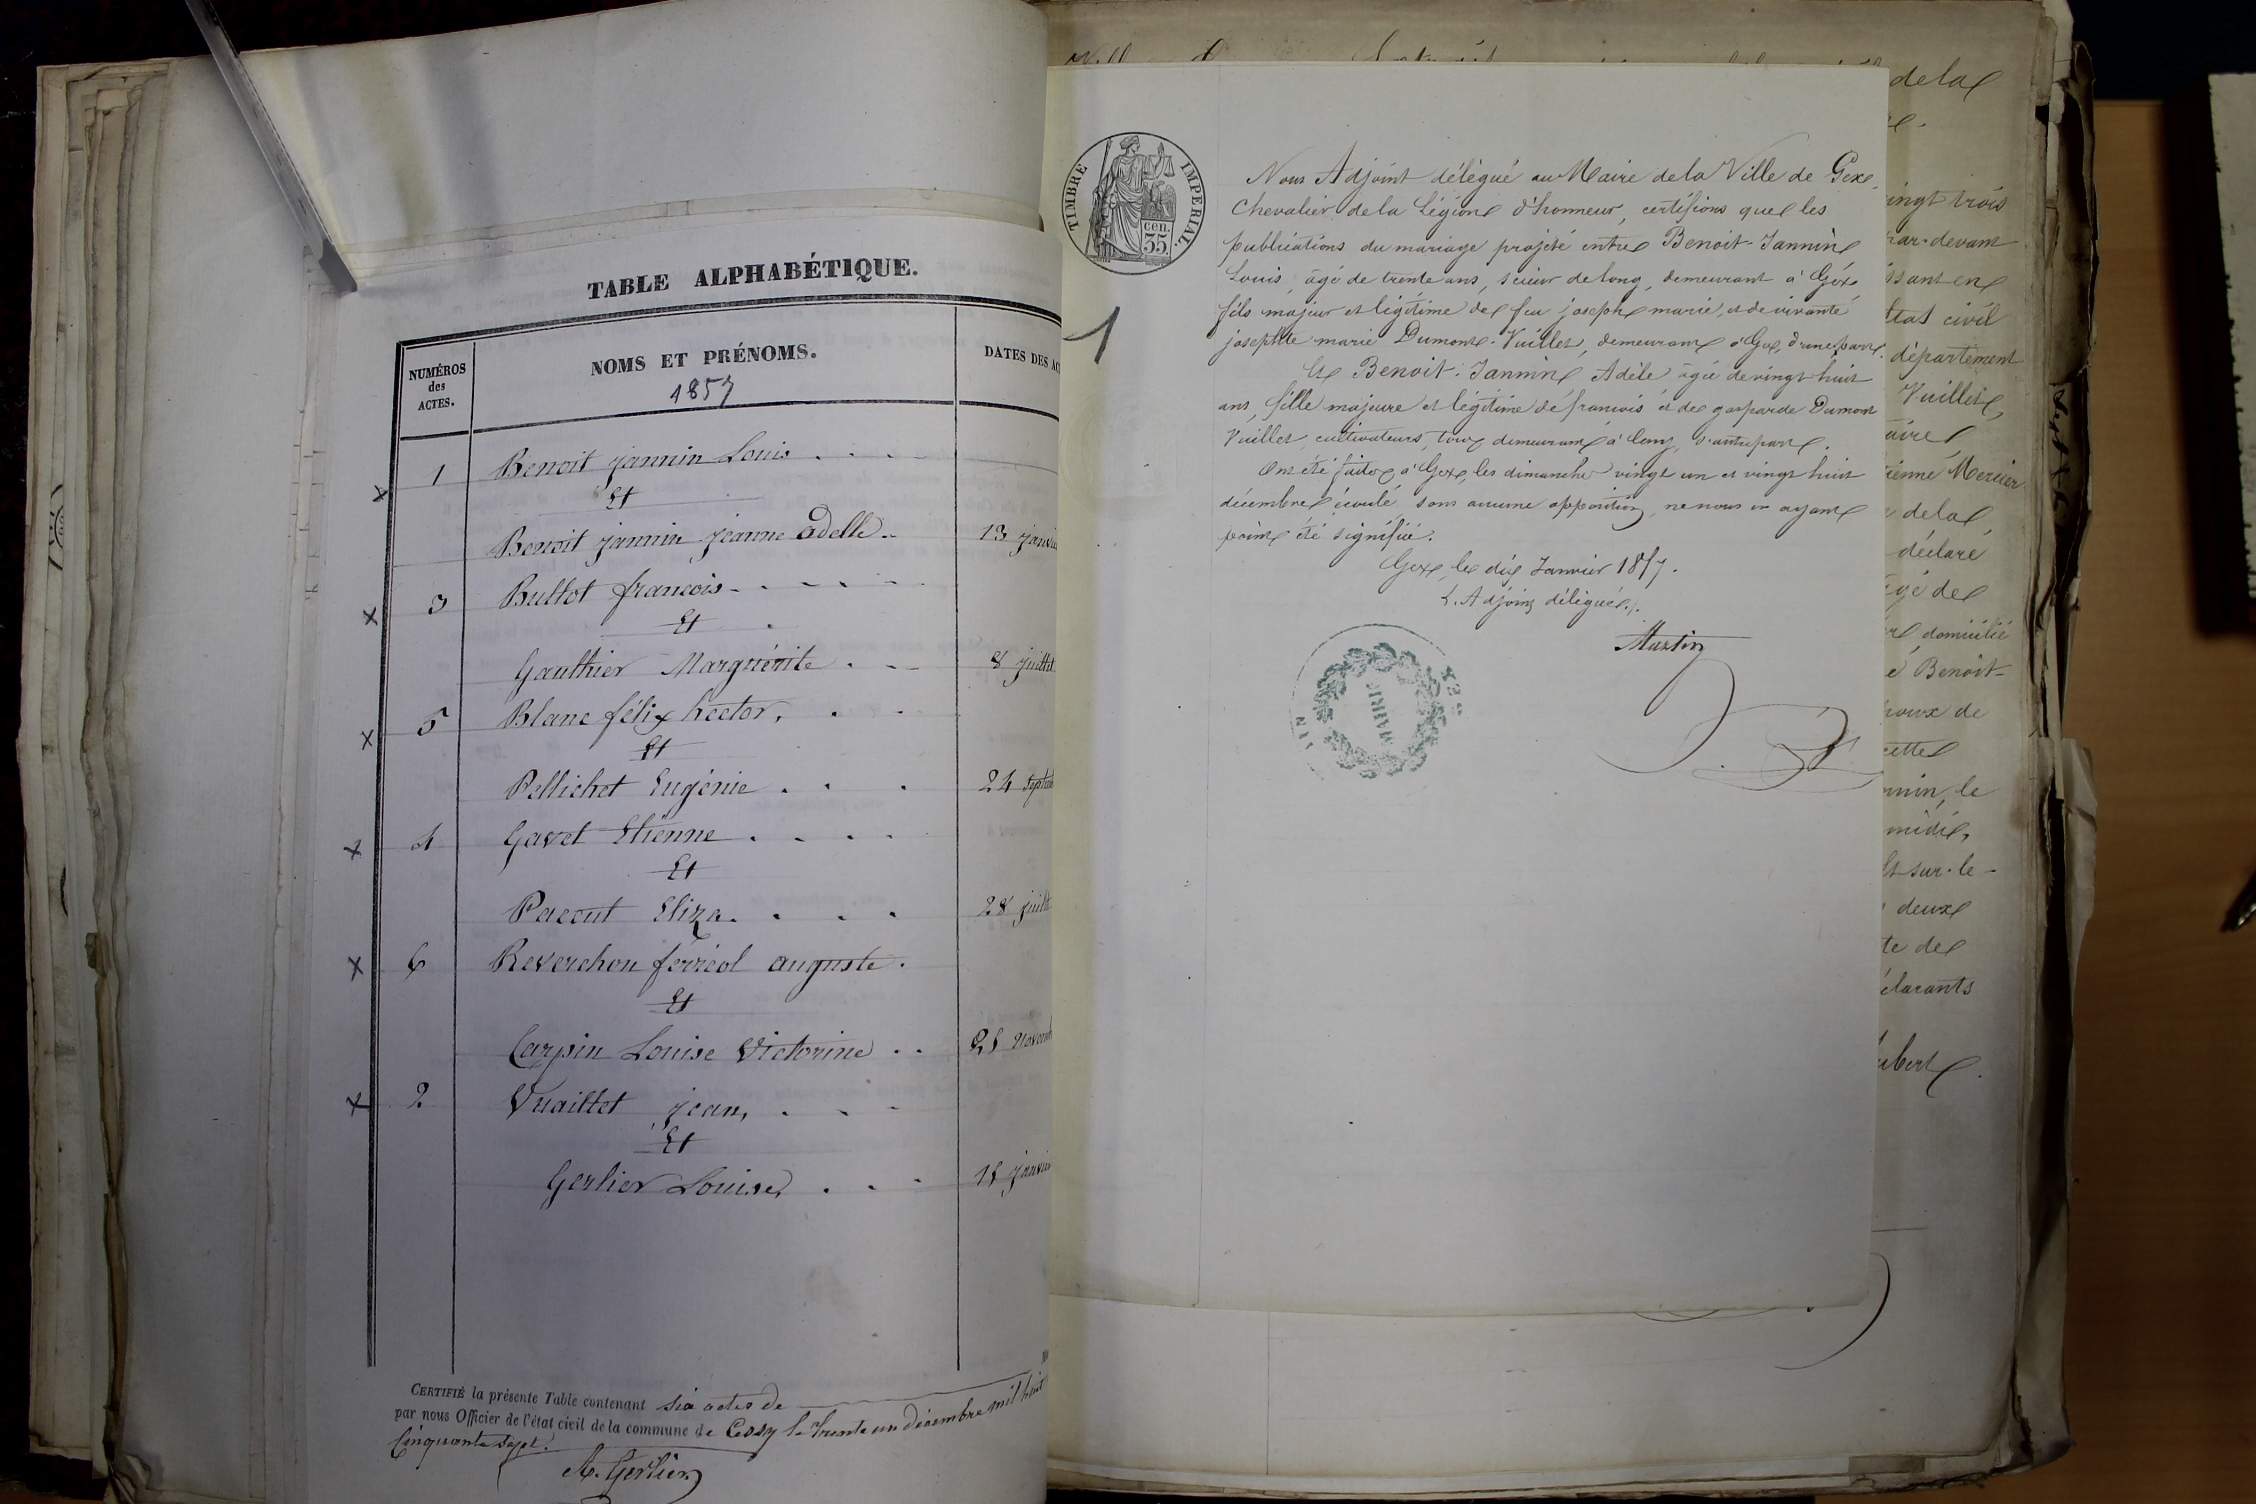 TABLE ALPHABÉTIQUE.
NUMÉROS
des
ACTES.
NOMS ET PRÉNOMS.
1857
DATES DES AC
1 Benoit jannin Louis . . . .
Et
Benoit jannin jeanne adelle . . 13 janvi
3 Bultot françois - - - - -
Et
Gauthier Marguérite . . . 8 juillet
5 Blanc félix hector, . .
Et
Pellichet Eugénie . . . 24 septemb
4 Gavet Etienne . . . .
Et
Paccut Eliza . . . . 28 juill
6 Reverchon férréol auguste .
Et
Carpin Louise Victorine . . 25 novemb
2 Vuaillet jean, . . .
Et
Gerlier Louise, . . . 15 janvie
CERTIFIÉ la présente Table contenant six actes de
par nous Officier de l'état civil de la commune de Cessy le trente un décembre mil huit
Cinquante sept.
A. Gerlier
TIMBRE IMPÉRIAL.
cen.
35.
1
Nous Adjoint délégué au Maire de la Ville de Gex,
Chevalier de la Légion d'honneur, certifions que les
publications du mariage projeté entre Benoit-Jannin
Louis, âgé de trente ans, scieur de long, demeurant à Gex
fils majeur et légitime de feu joseph marie, et de vivante
josephte marie Dumont-Vuillet, demeurant à Gex, d'une part.
Et Benoit-Jannin Adèle âgée de vingt huit
ans, fille majeure et légitime de francois et de gasparde Dumont
Vuillet, cultivateurs, tous demeurant à Cessy, d'autre part.
Ont été faites à Gex, les dimanches vingt un et vingt huit
décembre écoulé, sans aucune opposition, ne nous en ayant
point été signifié.
Gex, le dix Janvier 1857.
L'Adjoint délégué,
MAIRIE
GEX
AIN
de la
ingt trois
par-devant
issant en
état civil
département
Vuillet,
aire
tienne Mercier
de la
déclaré
âgé de
domicilié
é Benoit-
poux de
cette
nnin, le
midi,
Et sur-le-
deux
te de
éclarants